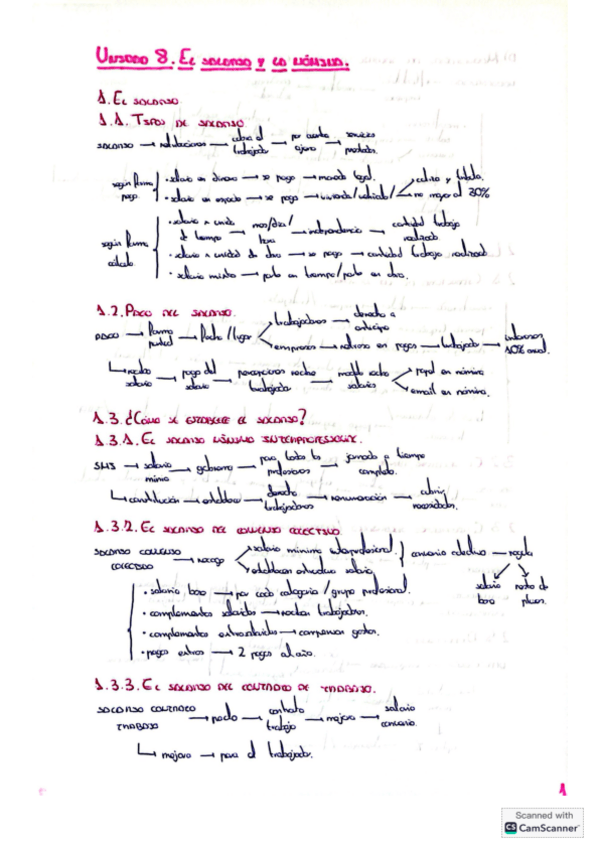 Unidad 8. El salario y la nómina.
1. El salario
1.1. Tipos de salario
salario → retribuciones → cobra el trabajador → por cuenta ajena → servicios prestados
según forma pago
· salario en dinero → se paga → moneda legal.
· salario en especie → se paga → vivienda/vehículo/ → no mayor al 30%
según forma cálculo
· salario a unidad de tiempo → mes/día/hora → independencia → cantidad trabajo realizado
· salario a unidad de obra → se paga → cantidad trabajo realizado
· salario mixto → parte en tiempo/parte en obra.
1.2. Pago del salario.
pago → forma puntual → fecha/lugar
trabajadores → derecho a anticipo
empresas → retraso en pagos → trabajador → intereses 10% anual.
recibo salario → pago del salario → percepciones recibe trabajador → modelo recibo salarios
papel en nómina
email en nómina.
1.3. ¿Cómo se establece el salario?
1.3.1. El salario mínimo interprofesional.
SMI → salario mínimo → gobierno → para todos los profesionales → jornada a tiempo completo.
constitución → establece → derecho trabajadores → remuneración → cubrir necesidades.
1.3.2. El salario del convenio colectivo.
salario convenio colectivo → recoge
salario mínimo interprofesional.
establecen estructura salario
convenio colectivo → regula
salario base
resto de pluses.
· salario base → por cada categoría/grupo profesional.
· complementos salariales → reciben trabajadores.
· complementos extrasalariales → compensar gastos.
· pagas extras → 2 pagas al año.
1.3.3. El salario del contrato de trabajo.
salario contrato trabajo → pacto → contrato trabajo → mejora → salario convenio.
mejora → para el trabajador.
1
Scanned with
CS CamScanner